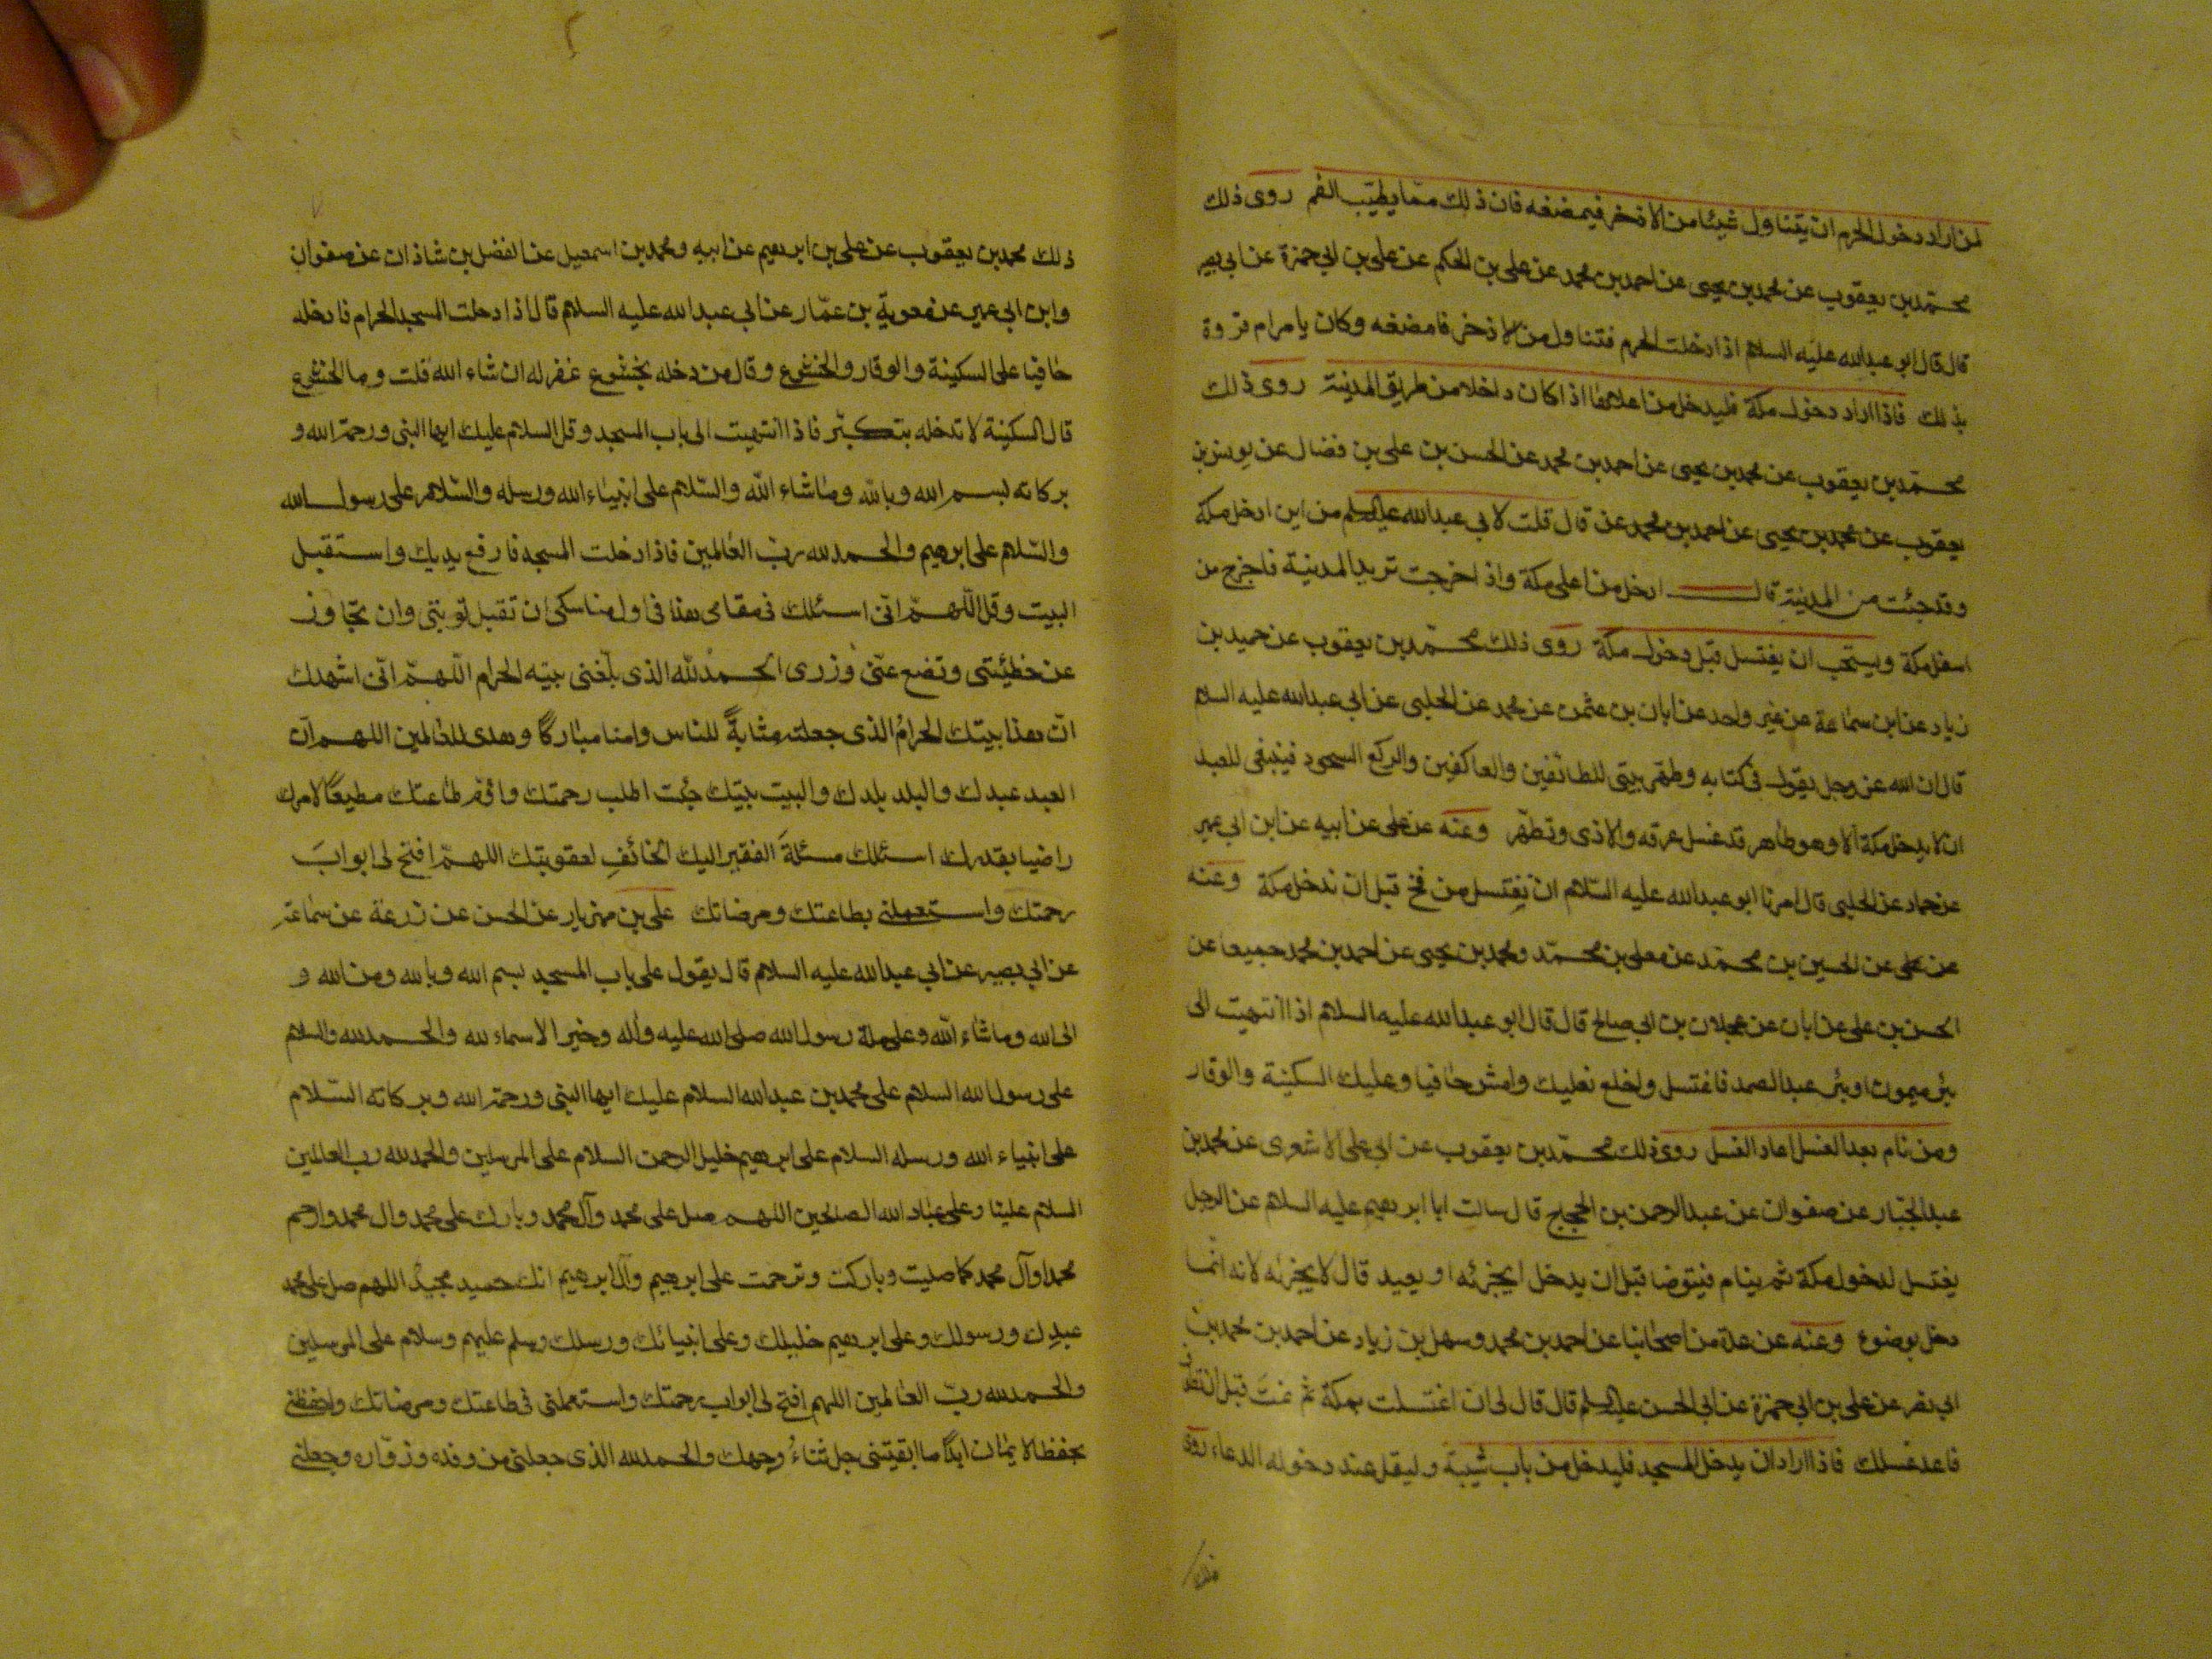 لمن اراد دخول الحرم ان يتناول شيئا من الاذخر فيمضغه فان ذلك مما يطيّب الفم روى ذلك
محمّد بن يعقوب عن محمد بن يحيى عن احمد بن محمد عن على بن الحكم عن على بن ابي حمزة عن ابي بصير
قال قال ابو عبدالله عليه السلام اذا دخلت الحرم فتناول من الاذخر فامضغه وكان يامر ام فروة
بذلك فاذا اراد دخول مكة فليدخل من اعلاها اذا كان داخلا من طريق المدينة روى ذلك
محمّد بن يعقوب عن محمد بن يحيى عن احمد بن محمد عن الحسن بن على بن فضال عن يونس بن
يعقوب عن محمد بن يحيى عن احمد بن محمد عن قال قلت لابي عبدالله عليه السلم من اين ادخل مكة
وقد جئت من المدينة قال ادخل من اعلى مكة واذا خرجت تريد المدينة فاخرج من
اسفل مكة ويستحب ان يغتسل قبل دخول مكة روى ذلك محمّد بن يعقوب عن حميد بن
زياد عن ابن سماعة عن غير واحد عن ابان بن عثمن عن محمد عن الحلبى عن ابي عبدالله عليه السلام
قال ان الله عز وجل يقول في كتابه وطهّر بيتي للطائفين والعاكفين والركع السجود فينبغى للعبد
ان لا يدخل مكة الا وهو طاهر قد غسل عرقه والاذى وتطهّر وعنه عن على عن ابيه عن ابن ابي عمير
عن حماد عن الحلبى قال امرنا ابو عبدالله عليه السّلام ان نغتسل من فخ قبل ان ندخل مكة وعنه
عن على عن الحسين بن محمّد عن معلى بن محمّد ومحمد بن يحيى عن احمد بن محمد جميعا عن
الحسن بن على عن ابان عن عجلان بن ابي صالح قال قال ابو عبدالله عليه السلام اذا انتهيت الى
بئر ميمون او بئر عبدالصمد فاغتسل واخلع نعليك وامش حافيا وعليك السكينة والوقار
ومن نام بعد الغسل اعاد الغسل روى ذلك محمّد بن يعقوب عن ابي على الاشعرى عن محمد بن
عبدالجبّار عن صفوان عن عبدالرحمن بن الحجاج قال سالت ابا ابرهيم عليه السلام عن الرجل
يغتسل لدخول مكة ثم ينام فيتوضا قبل ان يدخل ايجزئه او يعيد قال لا يجزئه لانه انّما
دخل بوضوء وعنه عن عدة من اصحابنا عن احمد بن محمد وسهل بن زياد عن احمد بن محمد بن
ابي نصر عن على بن ابي حمزة عن ابي الحسن عليه السلم قال قال لى ان اغتسلت بمكة ثم نمت قبل ان تطوف
فاعد غسلك فاذا اراد ان يدخل المسجد فليدخل من باب شيبة وليقل عند دخوله الدعاء روى
ذلك محمد بن يعقوب عن على بن ابرهيم عن ابيه ومحمد بن اسمعيل عن الفضل بن شاذان عن صفوان
وابن ابي عمير عن معوية بن عمّار عن ابي عبدالله عليه السلام قال اذا دخلت المسجد الحرام فادخله
حافيا على السكينة والوقار والخشوع وقال من دخله بخشوع غفر له ان شاء الله قلت وما الخشوع
قال السكينة لا تدخله بتكبّر فاذا انتهيت الى باب المسجد وقل السلام عليك ايها النبى ورحمة الله و
بركاته بسم الله وبالله وما شاء اللّه والسّلام على انبياء الله ورسله والسّلام على رسول الله
والسّلام على ابرهيم والحمد لله ربّ العالمين فاذا دخلت المسجد فارفع يديك واستقبل
البيت وقل اللّهمّ انّى اسئلك في مقامى هذا في اول مناسكى ان تقبل توبتى وان تجاوز
عن خطيئتى وتضع عنّى وزرى الحمد للّه الذى بلّغنى بيته الحرام اللّهمّ انّى اشهدك
انّ هذا بيتك الحرام الذى جعلته مثابةً للناس وامنا مباركاً وهدى للعالمين اللهم ان
العبد عبدك والبلد بلدك والبيت بيتك جئت اطلب رحمتك واؤم طاعتك مطيعاً لامرك
راضيا بقدرك اسئلك مسئلة الفقير اليك الخائفِ لعقوبتك اللهمّ افتح لى ابوابَ
رحمتك واستعملنى بطاعتك ومرضاتك على بن مهزيار عن الحسن عن زرعة عن سماعة
عن ابي بصير عن ابي عبدالله عليه السلام قال يقول على باب المسجد بسم الله وبالله ومن الله و
الى الله وما شاء اللّه وعلى ملة رسول الله صلى الله عليه وآله وخير الاسماء لله والحمد لله والسلام
على رسول الله السلام على محمد بن عبدالله السلام عليك ايها النبى ورحمة الله وبركاته السّلام
على انبياء الله ورسله السلام على ابرهيم خليل الرحمن السلام على المرسلين والحمد لله رب العالمين
السلام علينا وعلى عباد الله الصالحين اللهم صل على محمد وآل محمد وبارك على محمد وال محمد وارحم
محمدا وآل محمد كما صليت وباركت وترحمت على ابرهيم وآل ابرهيم انك حميد مجيدٌ اللهم صل على محمد
عبدك ورسولك وعلى ابرهيم خليلك وعلى انبيائك ورسلك وسلم عليهم وسلام على المرسلين
والحمد لله ربّ العالمين اللهم افتح لى ابواب رحمتك واستعملنى في طاعتك ومرضاتك واحفظنى
بحفظ الايمان ابداً ما ابقيتنى جل ثناءُ وجهك والحمد لله الذى جعلنى من وفده وزوّاره وجعلنى